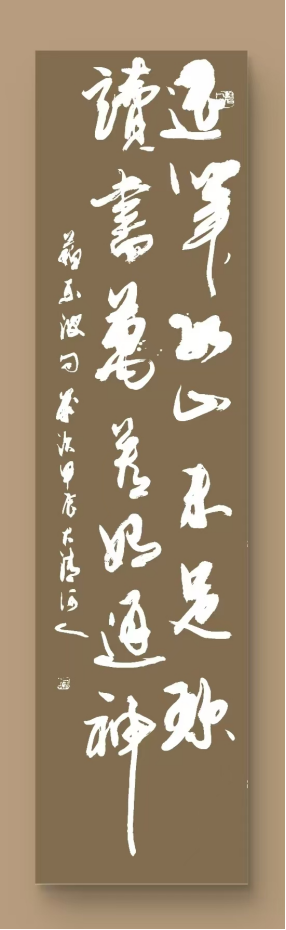 退筆如山未足珍
讀書萬卷始通神
蘇東坡句歲次甲辰大清河人